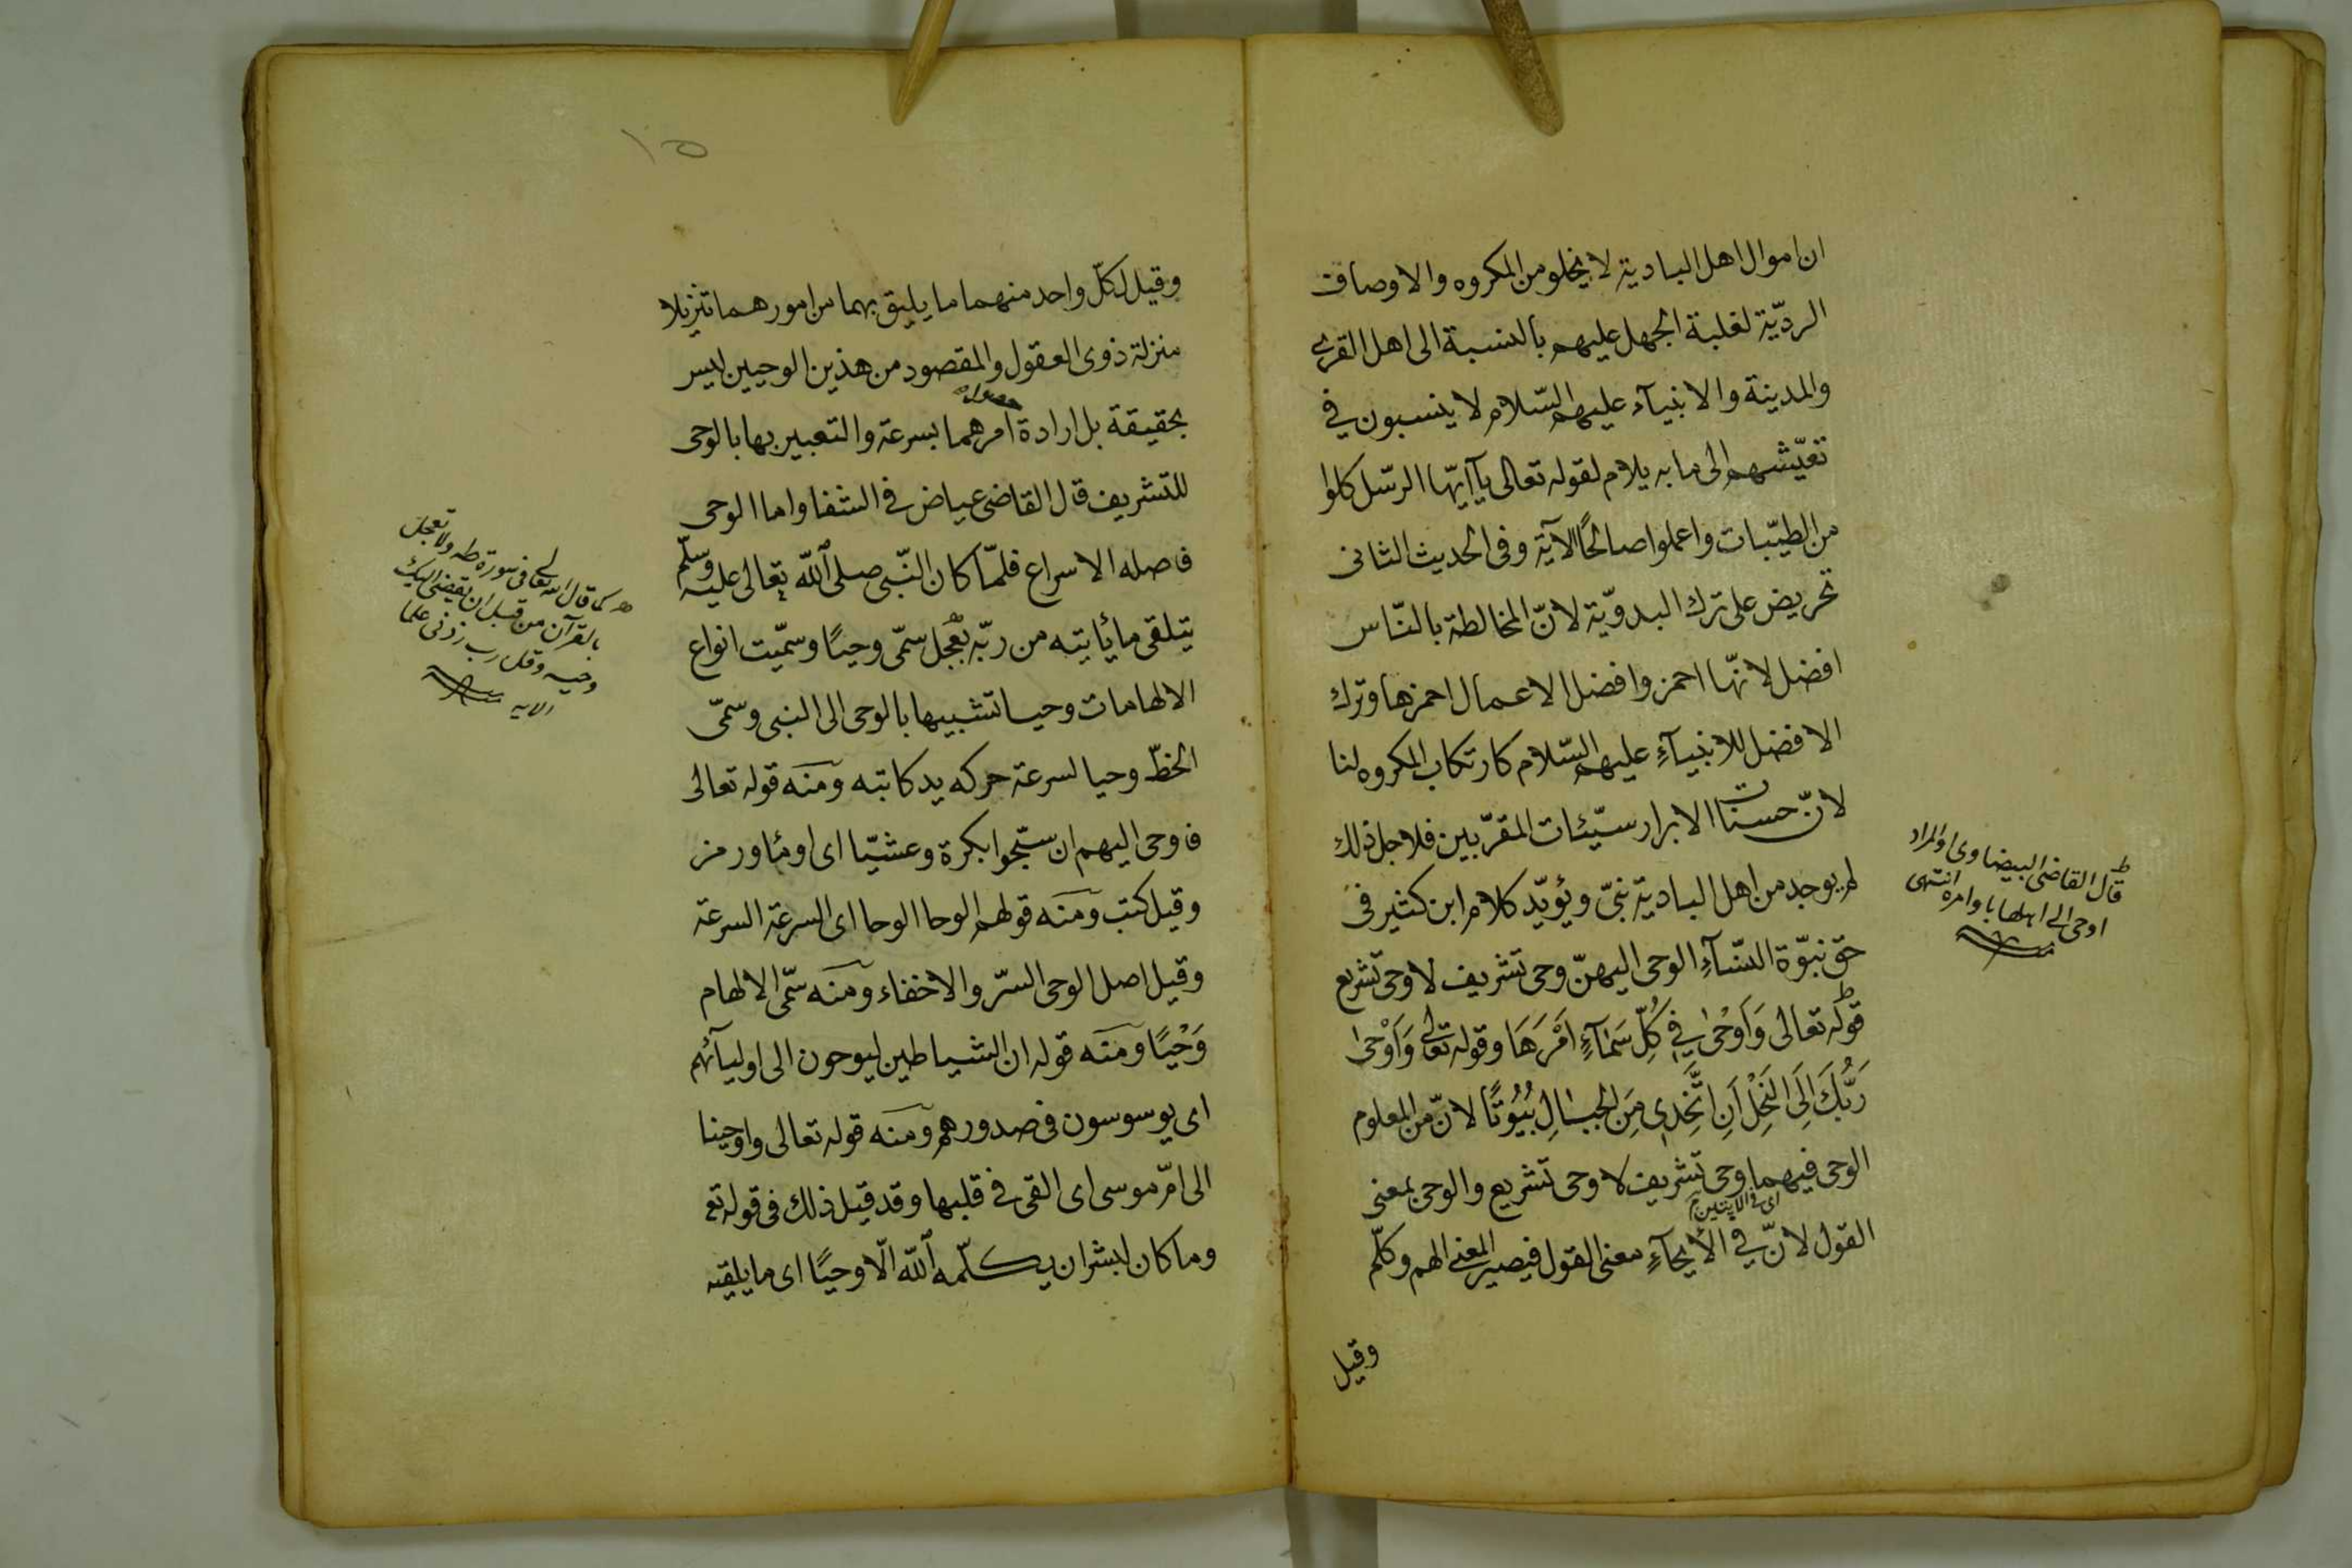 ان اموال اهل البادية لا يخلو من المكروه والاوصاف
الرديّة لغلبة الجهل عليهم بالنسبة الى اهل القرى
والمدينة والانبيآء عليهم السّلام لا ينسبون في
تعيّشهم الى ما به يلام لقوله تعالى يآ ايّها الرّسل كلوا
من الطيّبات واعملوا صالحًا الآية وفى الحديث الثانى
تحريض على ترك البدويّة لانّ المخالطة بالنّاس
افضل لانّها احمز وافضل الاعمال احمزها وترك
الافضل للانبيآءِ عليهم السّلام كارتكاب المكروه لنا
لانّ حسنات الابرار سيّئات المقرّبين فلاجل ذلك
لم يوجد من اهل البادية نبىّ ويؤيّد كلام ابن كثير فى
حقّ نبوّة النّسآءِ الوحى اليهنّ وحى تشريف لا وحى تشريع
قوله تعالى وَاَوْحٰى فِي كُلِّ سَمَآءٍ اَمْرَهَا وقوله تعالى وَاَوْحٰى
رَبُّكَ اِلَى النَّحْلِ اَنِ اتَّخِذِى مِنَ الْجِبَالِ بُيُوتًا لانّ من المعلوم
الوحى فيهما وحى تشريف لا وحى تشريع والوحى بمعنى
اى فى الايتين م
القول لانّ في الأيحآءِ معنى القول فيصير المعنى الهم وكلّم
وقيل
ط
قال القاضى البيضاوى او المراد
اوحى الى اهلها باوامره انتهى
منه
١٥
وقيل لكلّ واحد منهما ما يليق بهما من امورهما تنزيلا
منزلة ذوى العقول والمقصود من هذين الوحيين ليس
حصول
بحقيقة بل ارادة امرهما بسرعة والتعبير بها بالوحى
للتشريف قال القاضى عياض فى الشفا واما الوحى
فاصله الاسراع فلمّا كان النّبى صلى اللّه تعالى عليه وسلّم
يتلقى ما يأتيه من ربّه بعجل سمّى وحيًا وسمّيت انواع
الالهامات وحيا تشبيها بالوحى الى النبى وسمّى
الخطّ وحيا لسرعة حركه يد كاتبه ومنه قوله تعالى
فاوحى اليهم ان سبّحوا بكرة وعشيّا اى اومأ ورمز
وقيل كتب ومنه قولهم الوحا الوحا اى السرعة السرعة
وقيل اصل الوحى السّر والاخفاء ومنه سمّى الالهام
وَحْيًا ومنه قوله ان الشياطين ليوحون الى اوليآئهم
اى يوسوسون فى صدورهم ومنه قوله تعالى واوحينا
الى امّ موسى اى القى فى قلبها وقد قيل ذلك فى قوله تع
وما كان لبشر ان يكلّمه اللّه الّا وحيًا اى ما يلقيه
كما قال الله تعالى فى سورة طه ولا تعجل
بالقرآن من قبل ان يقضى اليك
وحيه وقل رب زدنى علما
الايه منه